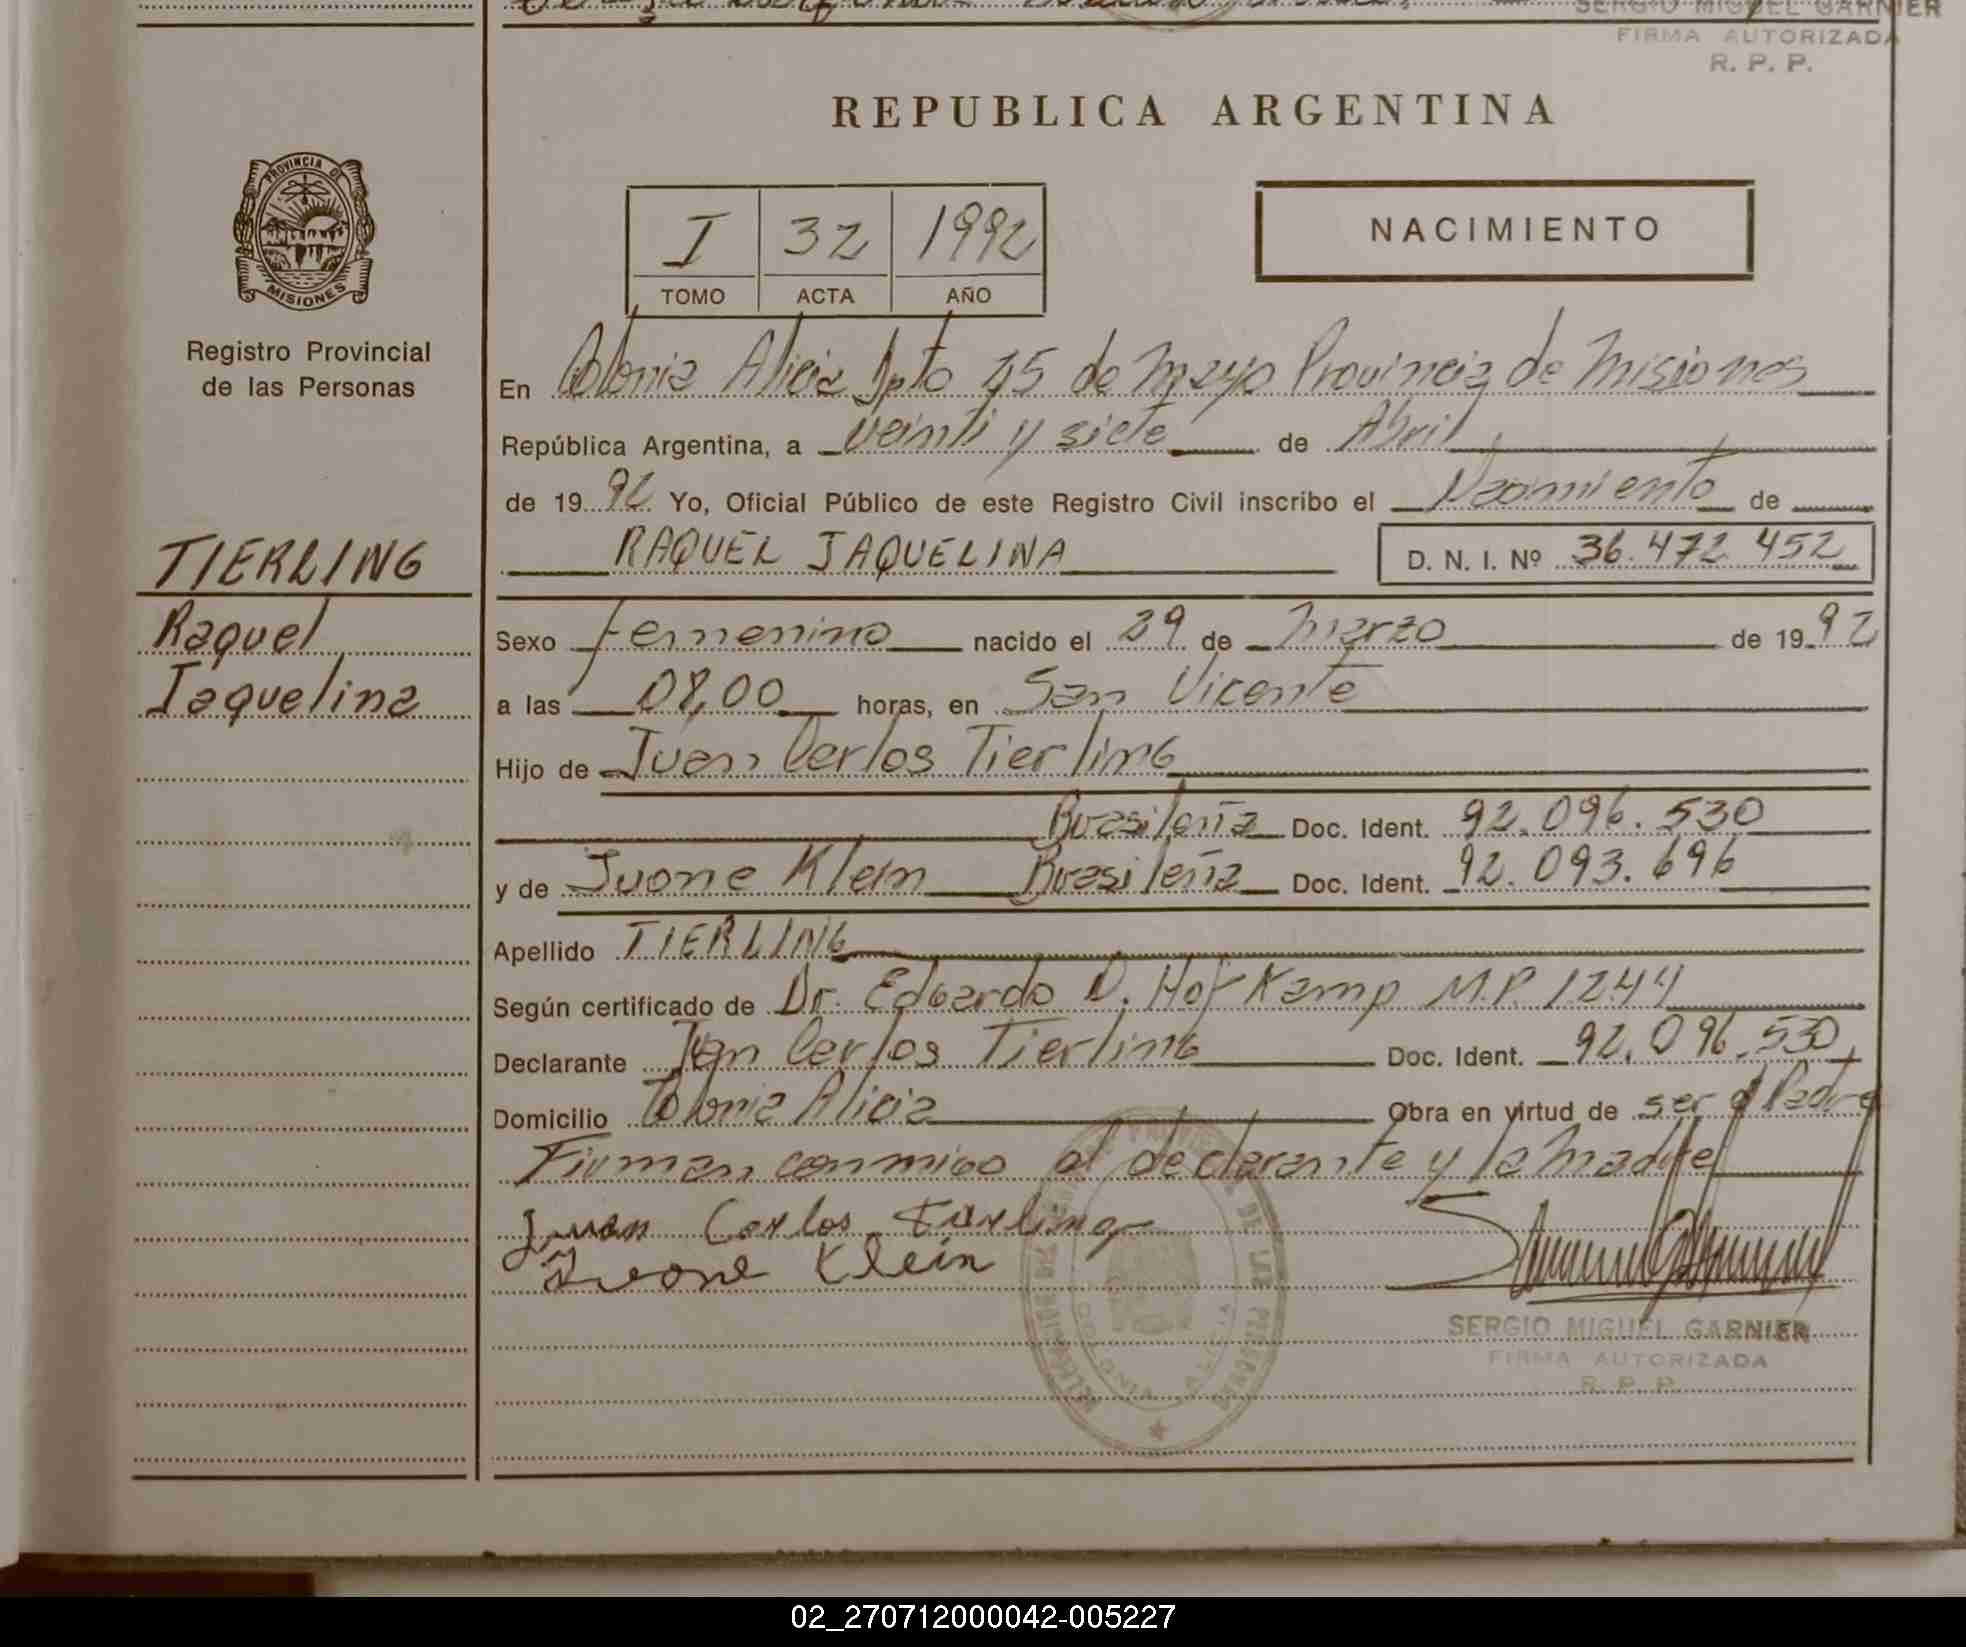 SERGIO MIGUEL GARNIER
FIRMA AUTORIZADA
R. P. P.
REPUBLICA ARGENTINA
PROVINCIA DE
MISIONES
Registro Provincial
de las Personas
I 32 1992
TOMO ACTA AÑO
NACIMIENTO
En Colonia Alicia Dpto 25 de Mayo Provincia de Misiones
República Argentina, a veinti y siete de Abril
de 1992 Yo, Oficial Público de este Registro Civil inscribo el Nacimiento de
RAQUEL JAQUELINA D. N. I. Nº 36.472.452
TIERLING
Raquel
Jaquelina
Sexo femenino nacido el 29 de Marzo de 1992
a las 08,00 horas, en San Vicente
Hijo de Juan Carlos Tierling
Brasileña Doc. Ident. 92.096.530
y de Ivone Klein Brasileña Doc. Ident. 92.093.696
Apellido TIERLING
Según certificado de Dr. Eduardo D. Hof Kamp M.P. 1244
Declarante Juan Carlos Tierling Doc. Ident. 92.096.530
Domicilio Colonia Alicia Obra en virtud de ser el Padre
Firman conmigo el declarante y la Madre
Juan Carlos Tierling
Ivone Klein
SERGIO MIGUEL GARNIER
FIRMA AUTORIZADA
R. P. P.
02_270712000042-005227